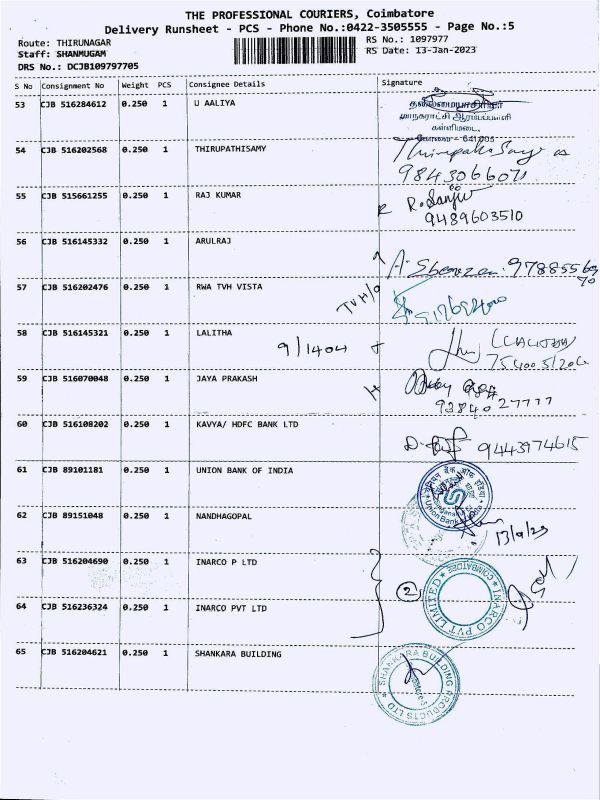 THE PROFESSIONAL COURIERS, Coimbatore
Delivery Runsheet - PCS - Phone No.:0422-3505555 - Page No.:5
Route: THIRUNAGAR
Staff: SHANMUGAM
DRS No.: DCJB109797705
RS No.: 1097977
RS Date: 13-Jan-2023
S No Consignment No Weight PCS Consignee Details Signature
53 CJB 516284612 0.250 1 U AALIYA
தலைமையாசிரியர்
மாநகராட்சி ஆரம்பப்பள்ளி
கள்ளிமடை,
கோவை - 641 005
54 CJB 516202568 0.250 1 THIRUPATHISAMY Thirupathi Samy
9843066071
55 CJB 515661255 0.250 1 RAJ KUMAR R. Sanjiv
9489603510
56 CJB 516145332 0.250 1 ARULRAJ
A. 97885569
57 CJB 516202476 0.250 1 RWA TVH VISTA TVH/O
58 CJB 516145321 0.250 1 LALITHA 9/1404 (LALITHA)
59 CJB 516070048 0.250 1 JAYA PRAKASH
9384027777
60 CJB 516108202 0.250 1 KAVYA/ HDFC BANK LTD 9443974615
61 CJB 89101181 0.250 1 UNION BANK OF INDIA
Union Bank of India
62 CJB 89151048 0.250 1 NANDHAGOPAL 13/1/23
63 CJB 516204690 0.250 1 INARCO P LTD
2
INARCO PVT LIMITED
COIMBATORE
64 CJB 516236324 0.250 1 INARCO PVT LTD
65 CJB 516204621 0.250 1 SHANKARA BUILDING
SHANKARA BUILDING PRODUCTS LTD